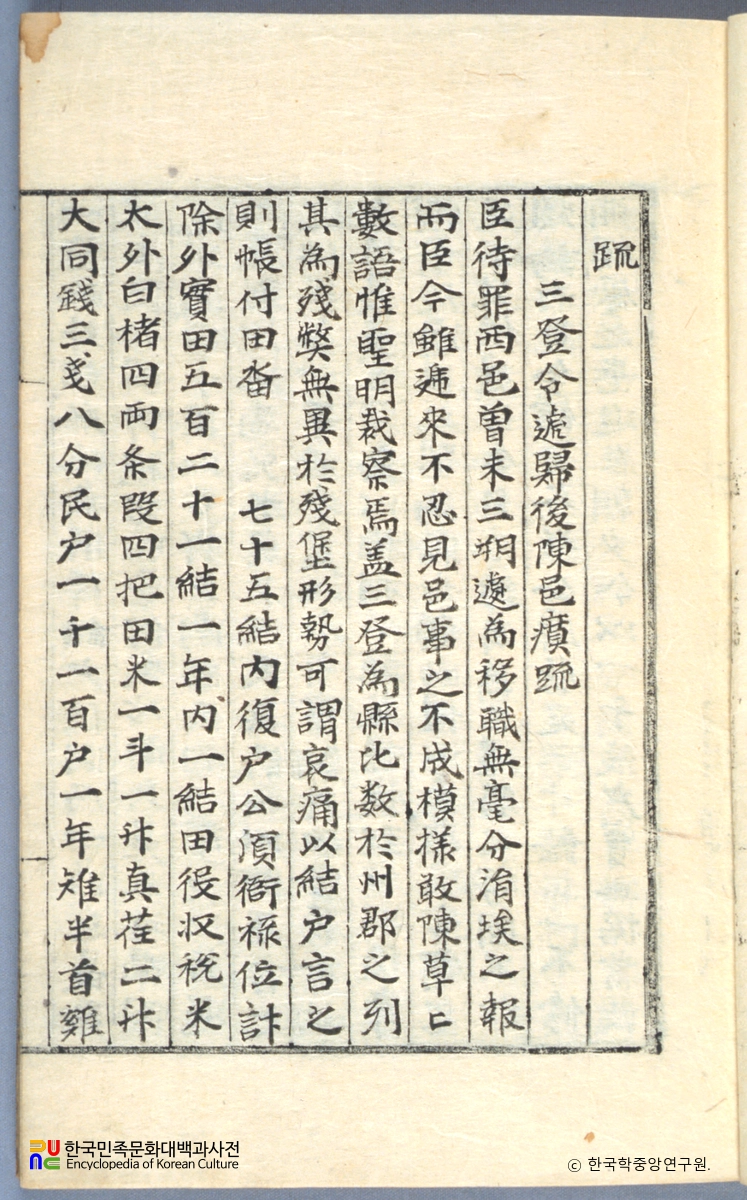 疏
三登令遞歸後陳邑瘼疏
臣待罪西邑曾未三朔遽為移職無毫分涓埃之報
而臣今雖遞來不忍見邑事之不成模樣敢陳草〻
數語惟聖明裁察焉盖三登為縣比数於州郡之列
其為殘獘無異於殘堡形勢可謂哀痛以結户言之
則帳付田畓 七十五結內復户公須衙祿位計
除外實田五百二十一結一年內一結田役收稅米
太外白楮四兩条段四把田米一斗一升真荏二升
大同錢三戔八分民户一千一百户一年雉半首雞
한국민족문화대백과사전
Encyclopedia of Korean Culture
© 한국학중앙연구원.